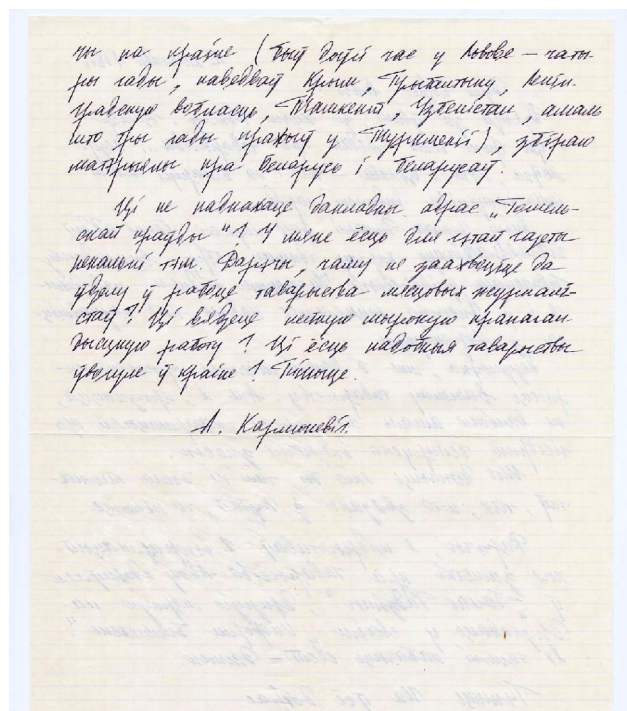 чы па краіне (быў доўгі час у Львове — чаты-
ры гады, наведваў Крым, Прыбалтыку, Ленін-
градскую вобласць, Ташкент, Узбекістан, амаль
што тры гады пражыў у Туркменіі), збіраю
матэрыялы пра Беларусь і беларусаў.
Ці не падкажаце дакладны адрас „Гомель-
скай праўды"? У мяне ёсць для гэтай газеты
некалькі тэм. Дарэчы, чаму не заахвоціце да
ўдзелу ў рабоце таварыства мясцовых журналі-
стаў? Ці вядзеце нейкую шырокую прапаган-
дысцкую работу? Ці ёсць падобныя таварыствы
ў краіне? Пішыце.
А. Карлюкевіч.